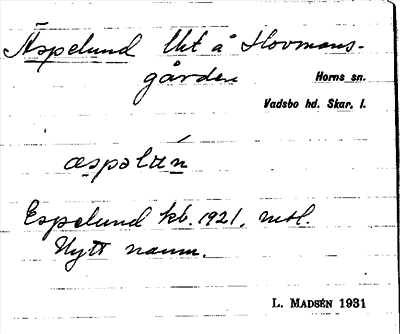 Äspelund lht å Hovmans-
gården
Horns sn.
Vadsbo hd. Skar. l.
æspəlɯ́n
Espelund kb. 1921, mtl.
Nytt namn.
L. MADSÉN 1931